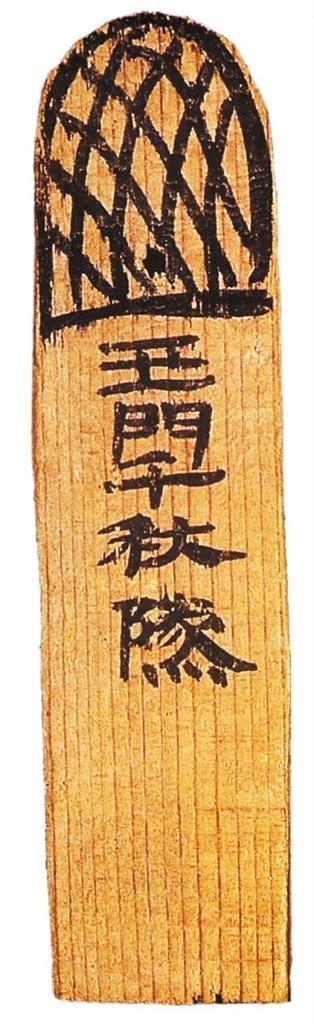 玉門千秋隧